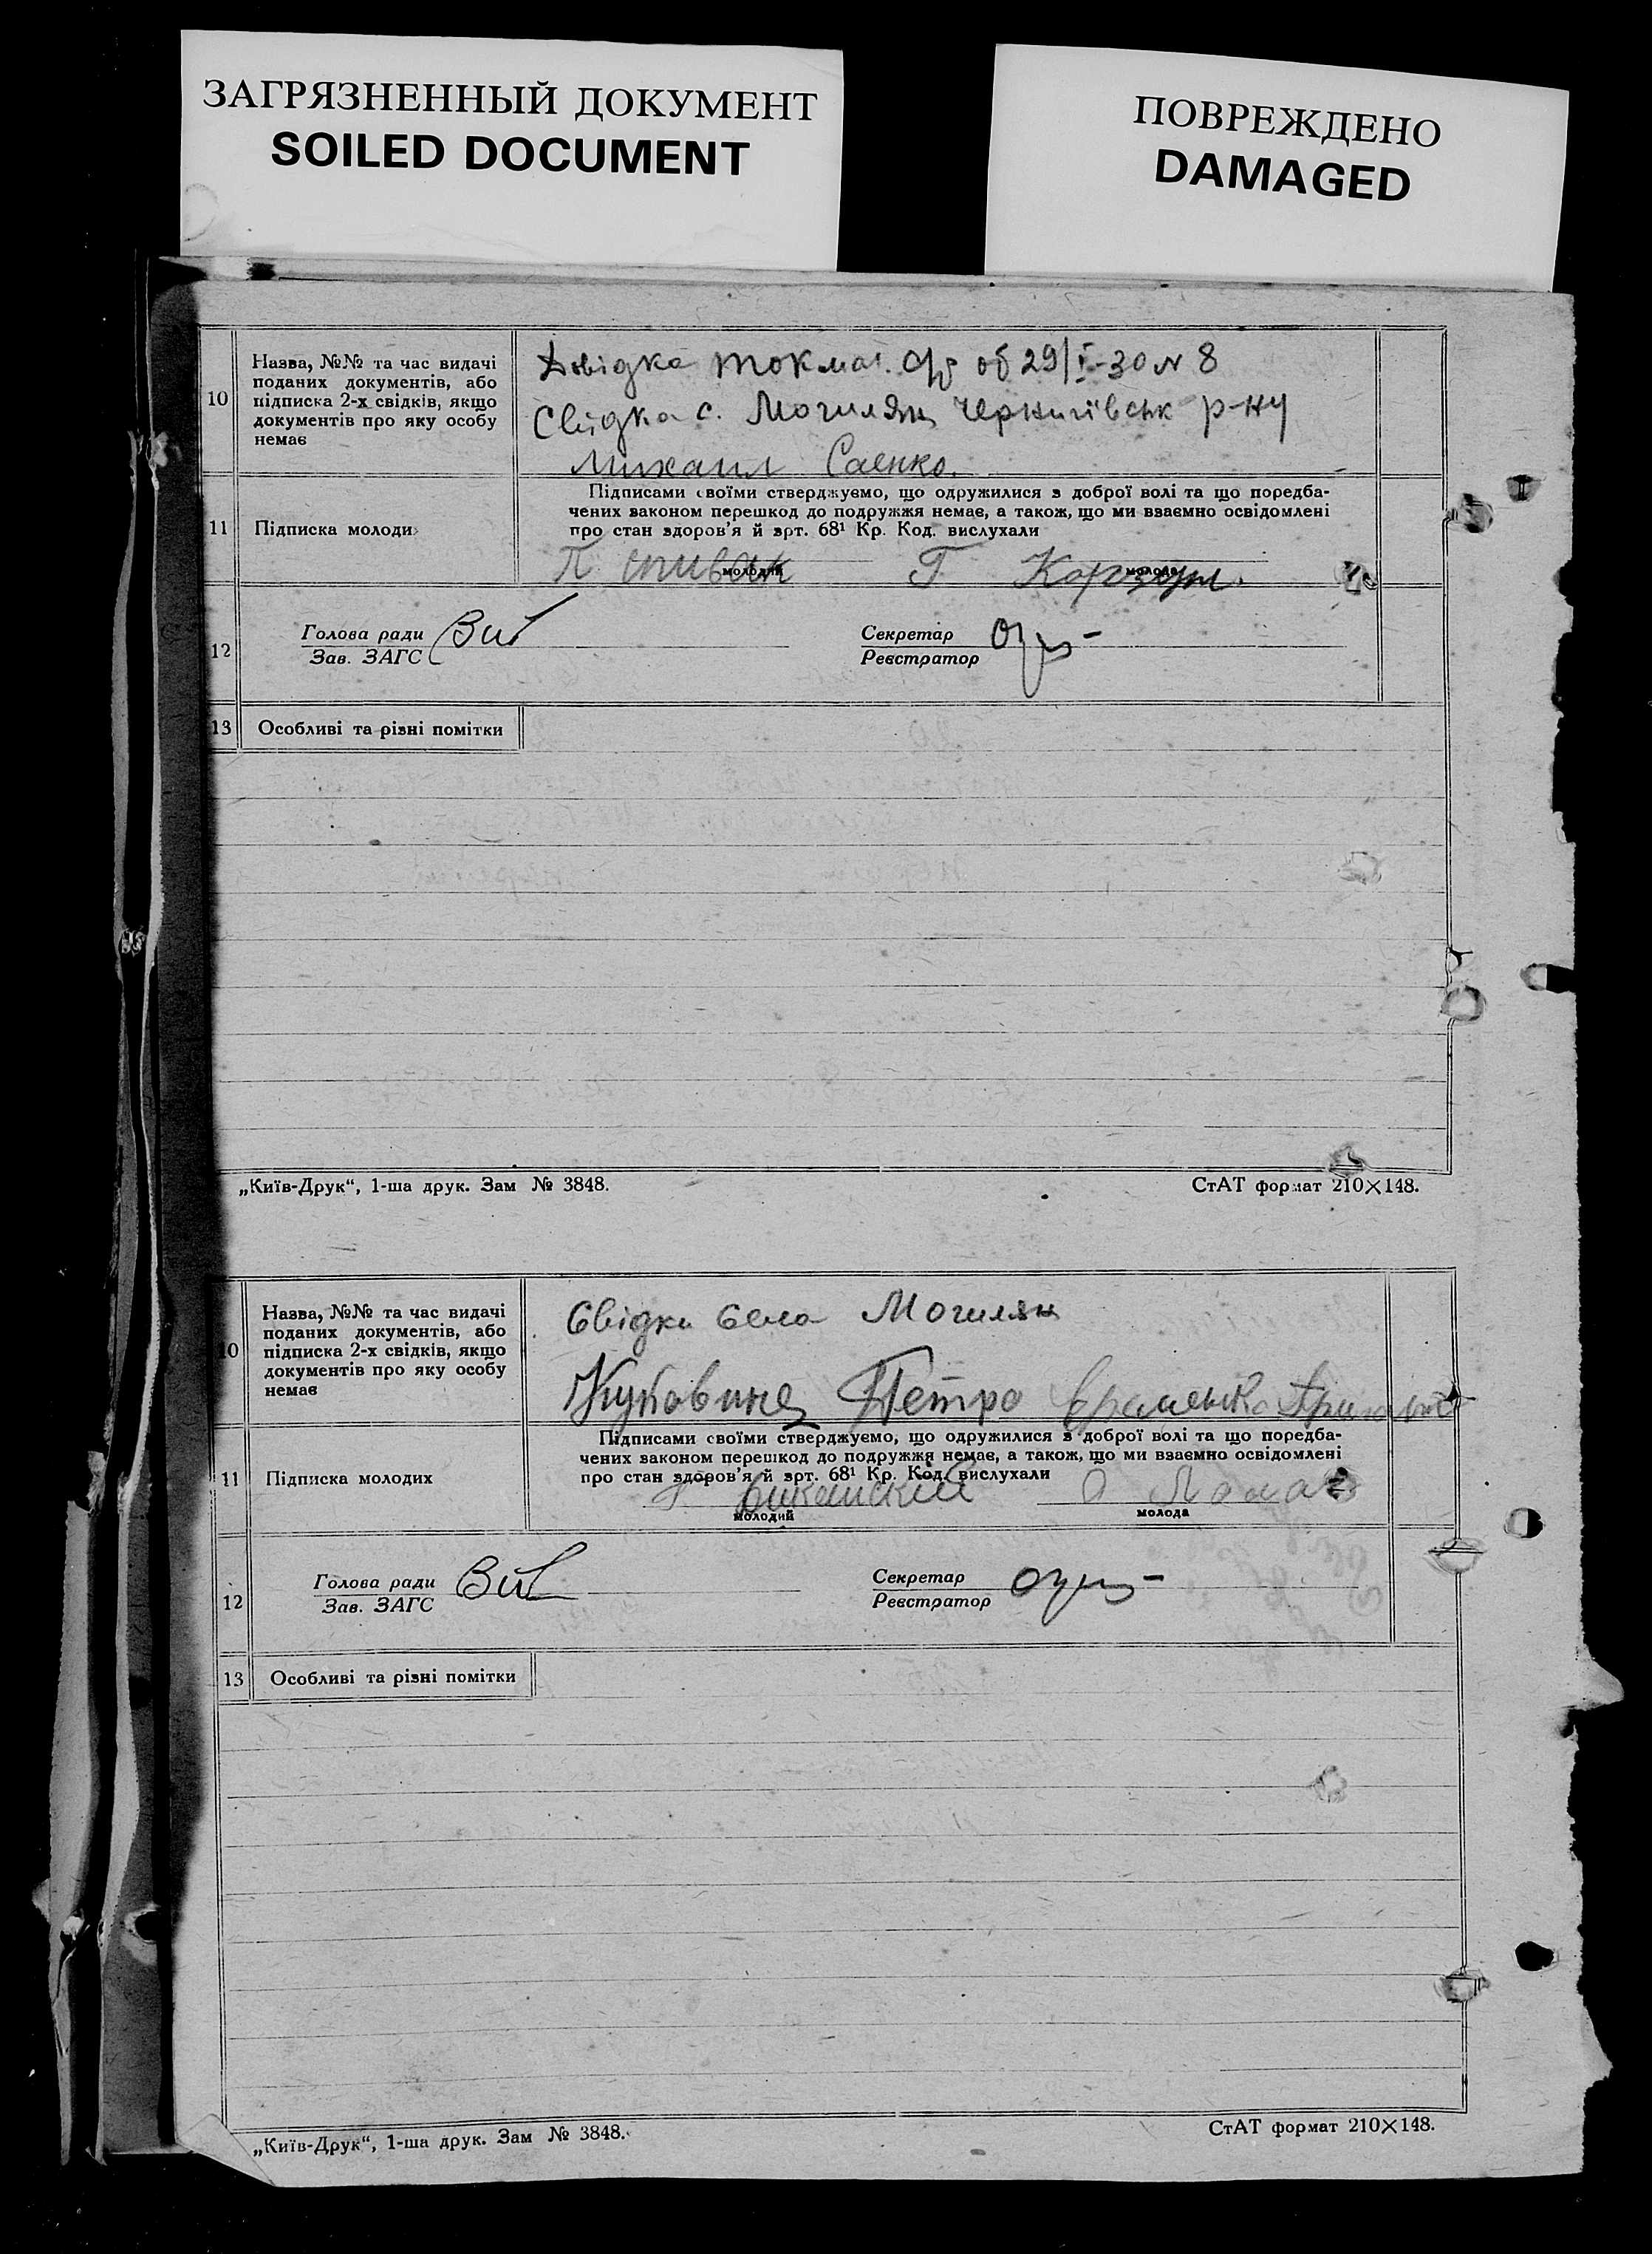 ЗАГРЯЗНЕННЫЙ ДОКУМЕНТ
SOILED DOCUMENT
ПОВРЕЖДЕНО
DAMAGED
10
Назва, №№ та час видачі
поданих документів, або
підписка 2-х свідків, якщо
документів про яку особу
немає
Довідка Токмац. с/р об 29/I-30 N 8
Свідка с. Могилян Чернигівськ р-ну
Михаил Саенко.
11
Підписка молоди
Підписами своїми стверджуємо, що одружилися з доброї волі та що поредба-
чених законом перешкод до подружжя немає, а також, що ми взаємно освідомлені
про стан здоров'я й арт. 68¹ Кр. Код. вислухали
П спивак Г
молодий молода
12
Голова ради
Зав. ЗАГС
Секретар
Реєстратор
13
Особливі та різні помітки
„Київ-Друк“, 1-ша друк. Зам № 3848.
СтАТ формат 210×148.
10
Назва, №№ та час видачі
поданих документів, або
підписка 2-х свідків, якщо
документів про яку особу
немає
Свідки села Могилян
Петро
11
Підписка молодих
Підписами своїми стверджуємо, що одружилися з доброї волі та що поредба-
чених законом перешкод до подружжя немає, а також, що ми взаємно освідомлені
про стан здоров'я й арт. 68¹ Кр. Код. вислухали
молодий молода
12
Голова ради
Зав. ЗАГС
Секретар
Реєстратор
13
Особливі та різні помітки
„Київ-Друк“, 1-ша друк. Зам № 3848.
СтАТ формат 210×148.